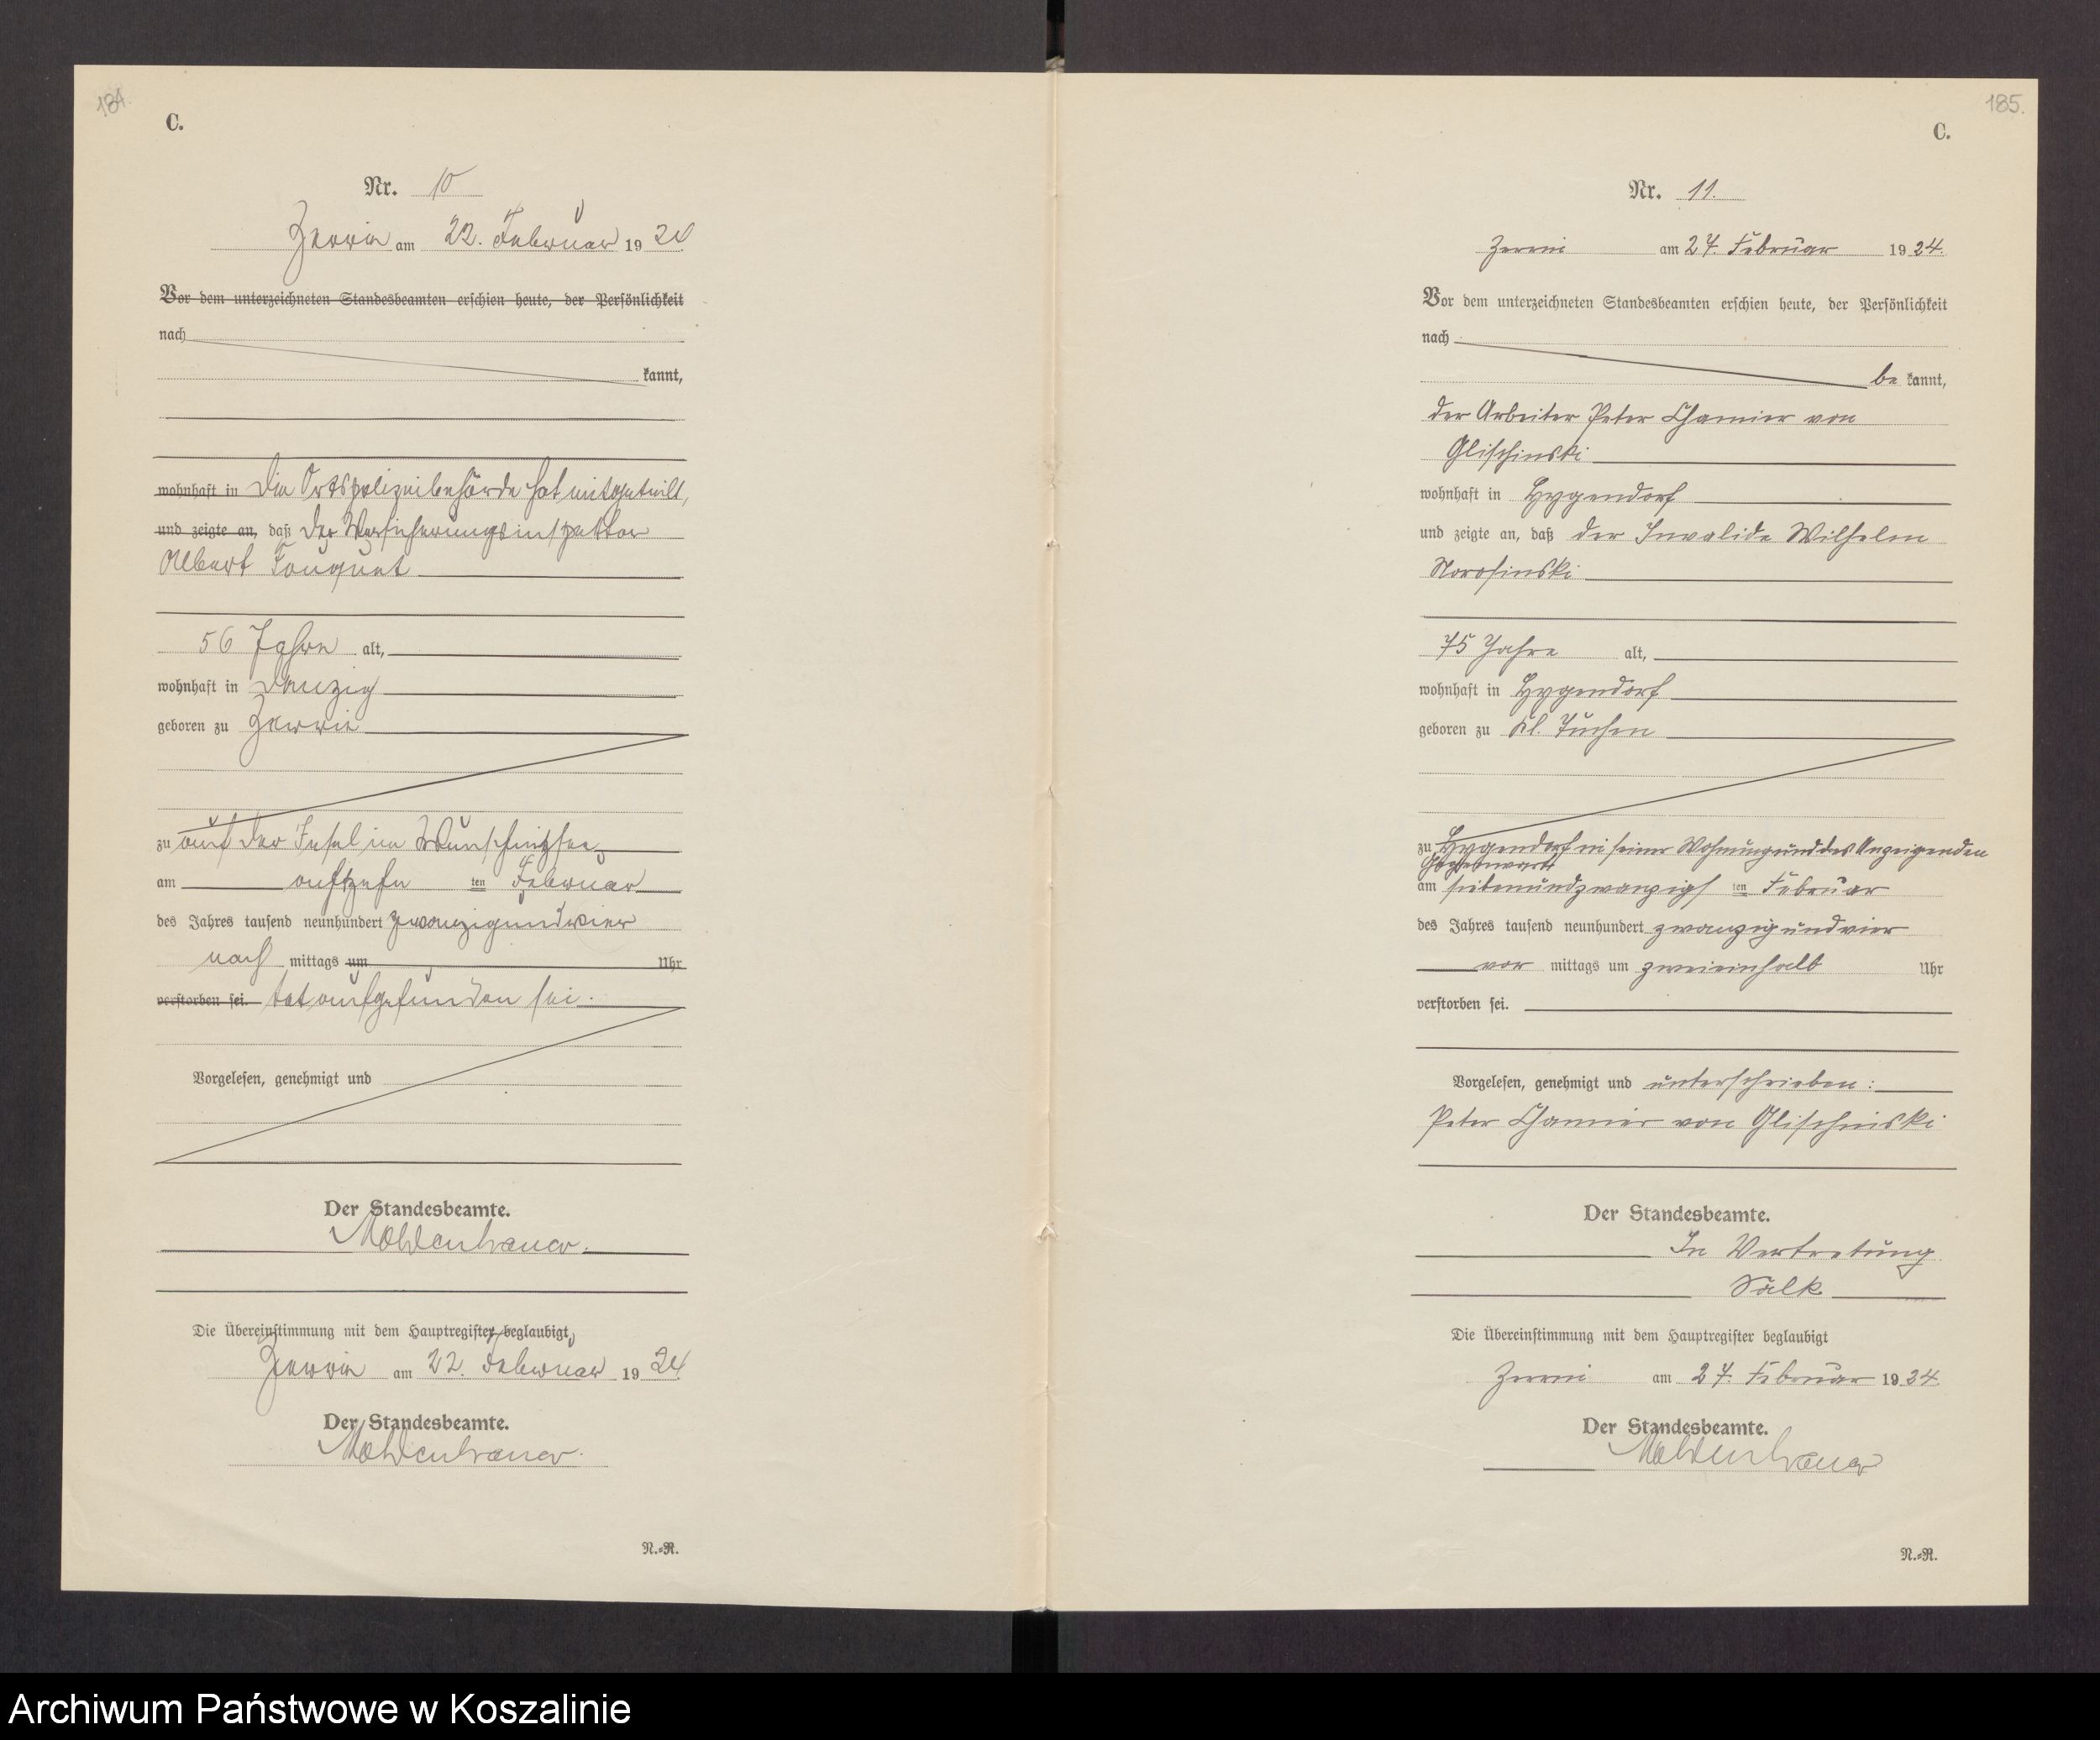 184.
C.
Nr. 10
Zerrin am 22. Februar 1924
Vor dem unterzeichneten Standesbeamten erschien heute, der Persönlichkeit
nach
kannt,
wohnhaft in Die Ortspolizeibehörde hat mitgeteilt,
und zeigte an, daß der Versicherungsinspektor
Albert Fouquet
56 Jahre alt,
wohnhaft in Danzig
geboren zu Zerrin
zu auf der Insel im
am achtzehn ten Februar
des Jahres tausend neunhundert zwanzigundvier
nach mittags um Uhr
verstorben sei. tot aufgefunden sei.
Vorgelesen, genehmigt und
Der Standesbeamte.
Moldenhauer.
Die Übereinstimmung mit dem Hauptregister beglaubigt
Zerrin am 22. Februar 1924
Der Standesbeamte.
Moldenhauer.
N.=R.
185.
C.
Nr. 11.
Zerrin am 27. Februar 1924.
Vor dem unterzeichneten Standesbeamten erschien heute, der Persönlichkeit
nach
be kannt,
der Arbeiter Peter Chamier von
Glischinski
wohnhaft in Hygendorf
und zeigte an, daß der Invalide Wilhelm
75 Jahre alt,
wohnhaft in Hygendorf
geboren zu Kl. Tuchen
zu Hygendorf in seiner Wohnung und des Anzeigenden
Gegenwart
am siebenundzwanzigs ten Februar
des Jahres tausend neunhundert zwanzig und vier
vor mittags um zweieinhalb Uhr
verstorben sei.
Vorgelesen, genehmigt und unterschrieben:
Peter Chamier von Glischinski
Der Standesbeamte.
In Vertretung
Die Übereinstimmung mit dem Hauptregister beglaubigt
Zerrin am 27. Februar 1924.
Der Standesbeamte.
Moldenhauer
N.=R.
Archiwum Państwowe w Koszalinie